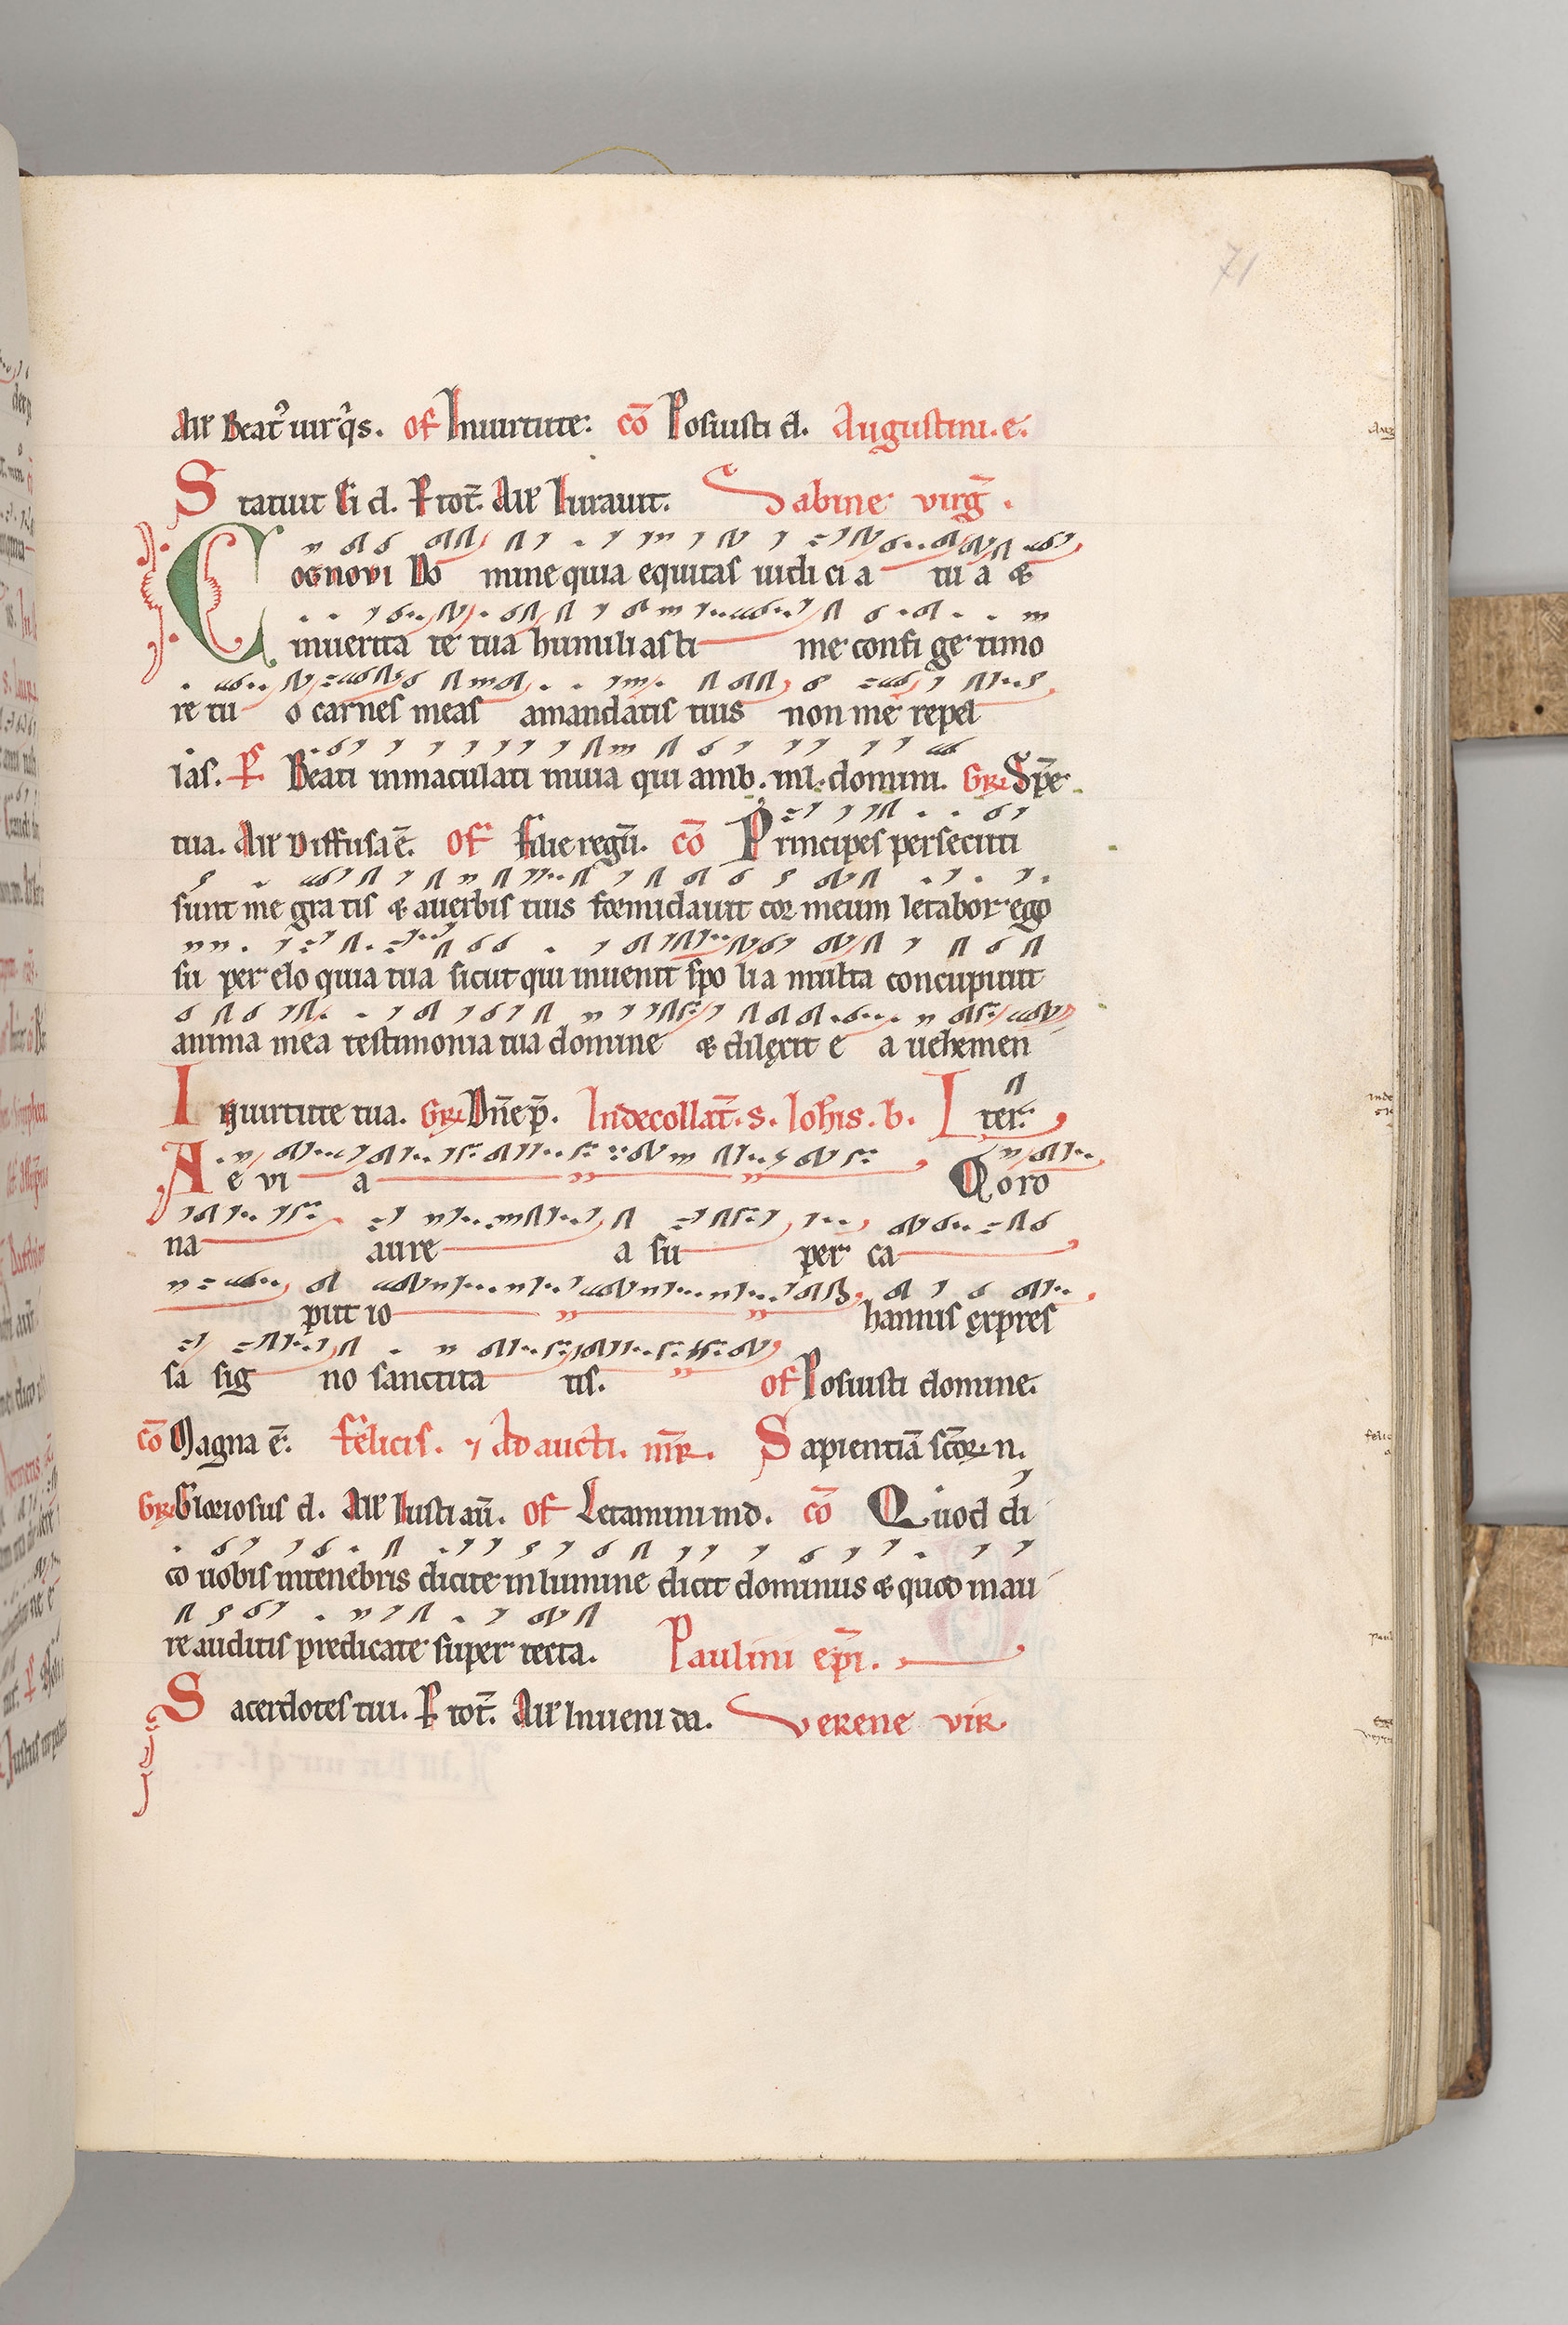 71
Aɫɫ Beat᷒ uir q̇s. of Inuirtute: cō Posuisti d. Augustini. e.
Statuit ei d. P tot̄. Aɫɫ Iurauit. Sabine virḡ.
Cognovi Do mine quia equitas iudi ci a tu a &
inuerita te tua humiliasti me confi ge timo
re tu o carnes meas amandatis tuis non me repel
las. Ps Beati inmaculati inuia qui amb. in l. domini. Gr Sp̄e
tua. Aɫɫ Diffusa ē. Of Filie regū. cō Principes persecuti
sunt me gratis & auerbis tuis formidauit cor meum letabor ego
su per elo quia tua sicut qui inuenit spo lia multa concupiuit
anima mea testimonia tua domine & dilexit e a uehemen
Inuirtute tua. Gr Dn̄e p̄. Indecollat̄. s. Ioh̄is. b. ter.
Ae vi a Coro
na aure a su per ca
put io hannis expres
sa sig no sanctita tis. of Posuisti domine.
cō Magna ē. felicis. ⁊ Ad aucti. m̄r. Sapientiā scōr. n.
Gr Gloriosus d. Aɫɫ Iusti aū. of Letamini ind. cō Quod di
co uobis intenebris dicite in lumine dicit dominus & quod in au
re auditis predicate super tecta. Paulini ep̄i.
Sacerdotes tui. P tot̄. Aɫɫ Inueni da. Verene vir